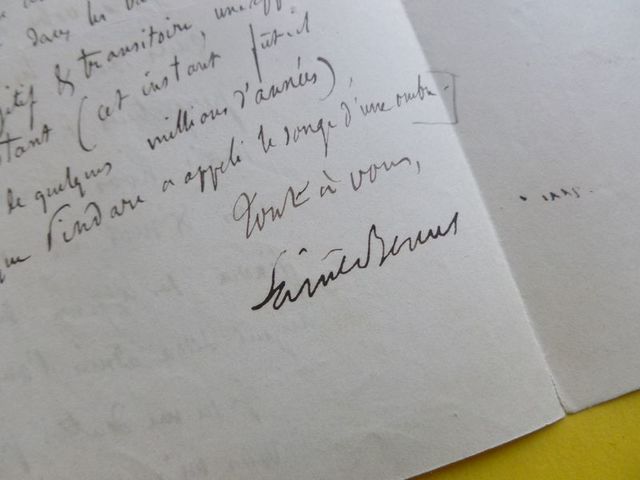 dans les
& transitoire, une
(cet instant fût-il
de quelques millions d'années),
que Pindare a appelé le songe d'une ombre.
Tout à vous,
Sainte-Beuve